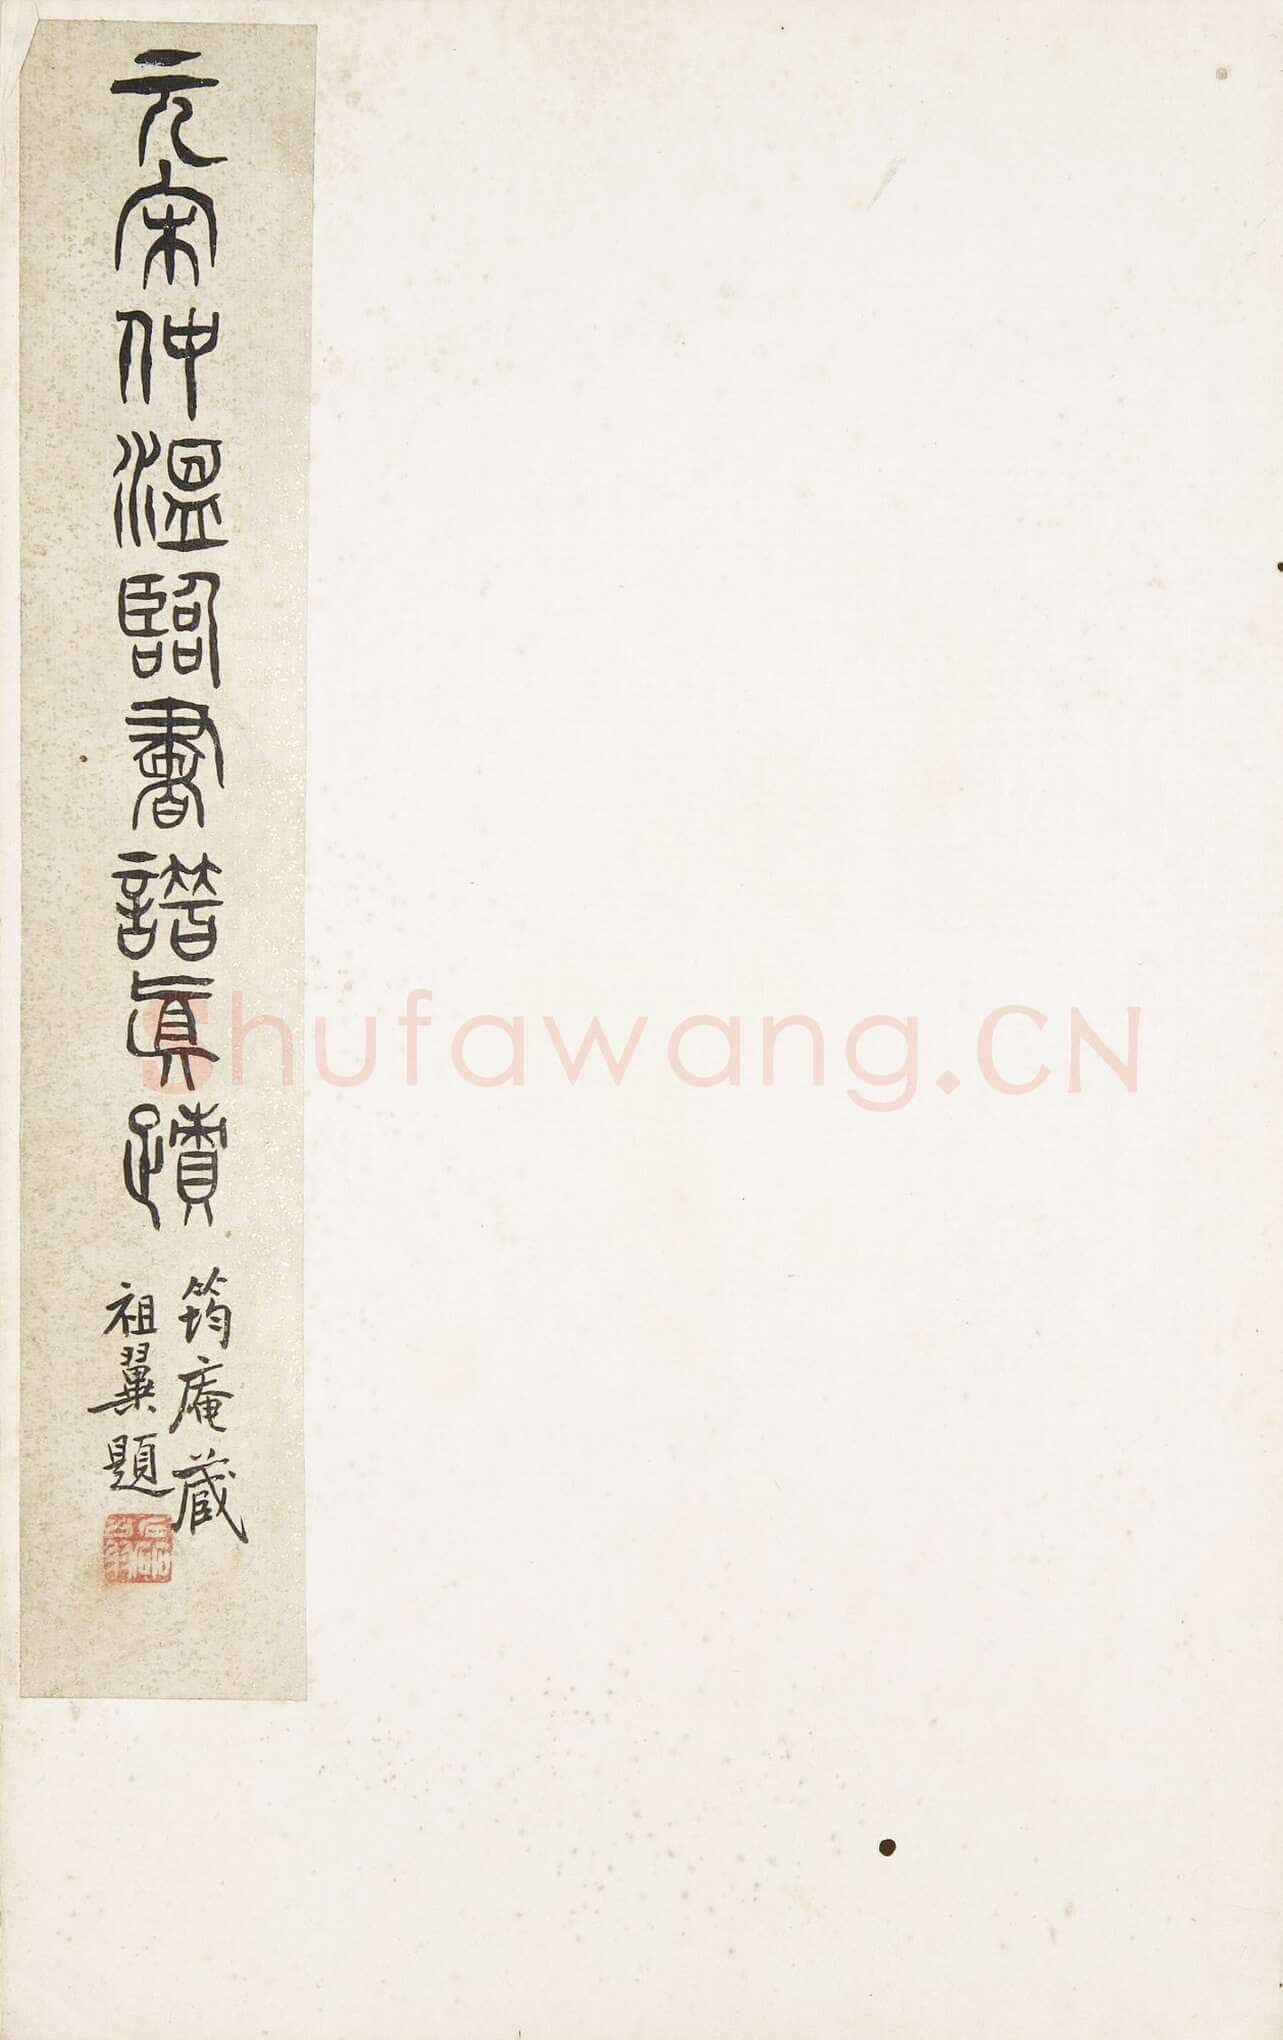 元宋仲溫臨書譜真蹟
筠庵藏
祖翼題
Shufawang.CN